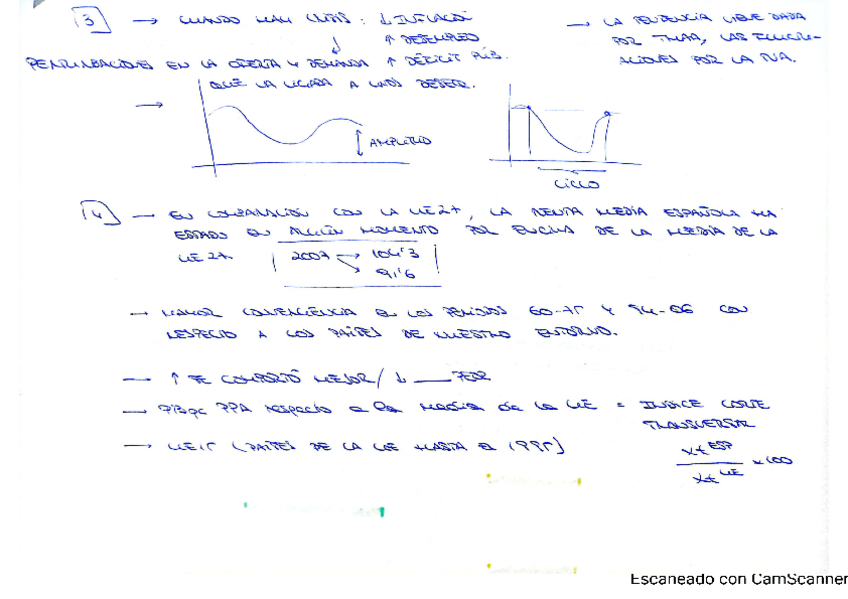 3 → CUANDO HAY CRISIS: ↓ INFLACIÓN
↑ DESEMPLEO
↑ DÉFICIT PÚB.
→ LA TENDENCIA VIENE DADA
POR TMAA, LAS FLUCTU-
ACIONES POR LA TVA.
PERTURBACIONES EN LA OFERTA Y DEMANDA
QUE LA LIGADA A UNOS DETER.
→
AMPLITUD
CICLO
4 → EN COMPARACIÓN CON LA UE27, LA RENTA MEDIA ESPAÑOLA HA
ESTADO EN ALGÚN MOMENTO POR ENCIMA DE LA MEDIA DE LA
UE 27.
2007 → 104'3
→ 91'6
→ MAYOR CONVERGENCIA EN LOS PERIODOS 60-75 Y 94-06 CON
RESPECTO A LOS PAÍSES DE NUESTRO ENTORNO.
→ ↑ SE COMPORTÓ MEJOR / ↓ ___ PEOR
→ PIBpc PPA respecto a la media de la UE = INDICE CORTE
TRANSVERSAL
→ UE15 (PAÍSES DE LA UE HASTA EL 1995)
Xt ESP
Xt UE
x100
Escaneado con CamScanner